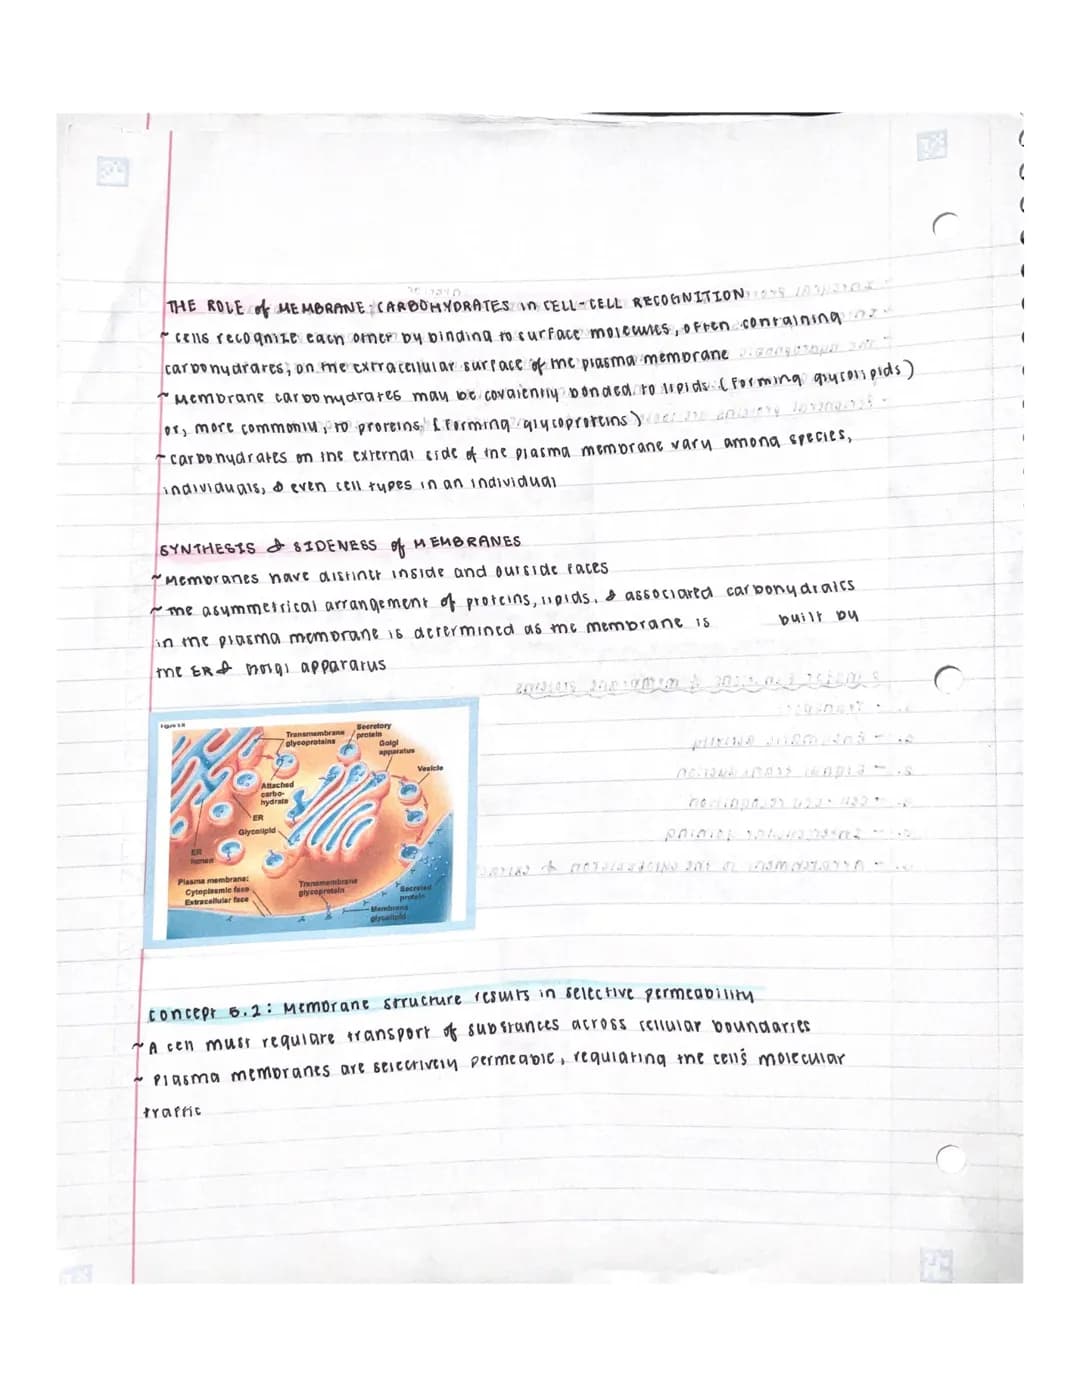 THE ROLE of MEMBRANE CARBOHYDRATES in CELL-CELL RECOGNITION
~ cells recognize each other by binding to surface molecules, often containing
carbohydrates, on the extracellular surface of the plasma membrane
~ Membrane carbohydrates may be covalently bonded to lipids (forming glycolipids)
or, more commonly, to proteins (forming glycoproteins)
~ carbohydrates on the external side of the plasma membrane vary among species,
individuals, & even cell types in an individual
SYNTHESIS & SIDENESS of MEMBRANES
~ Membranes have distinct inside and outside faces
~ the asymmetrical arrangement of proteins, lipids, & associated carbohydrates
in the plasma membrane is determined as the membrane is built by
the ER & Golgi apparatus
Transmembrane
glycoproteins
Secretory
protein
Golgi
apparatus
Vesicle
Attached
carbo-
hydrate
ER
Glycolipid
ER
lumen
Plasma membrane:
Cytoplasmic face
Extracellular face
Transmembrane
glycoprotein
Secreted
protein
Membrane
glycolipid
concept 5.2: Membrane structure results in selective permeability
~ A cell must regulate transport of substances across cellular boundaries
~ Plasma membranes are selectively permeable, regulating the cell's molecular
traffic